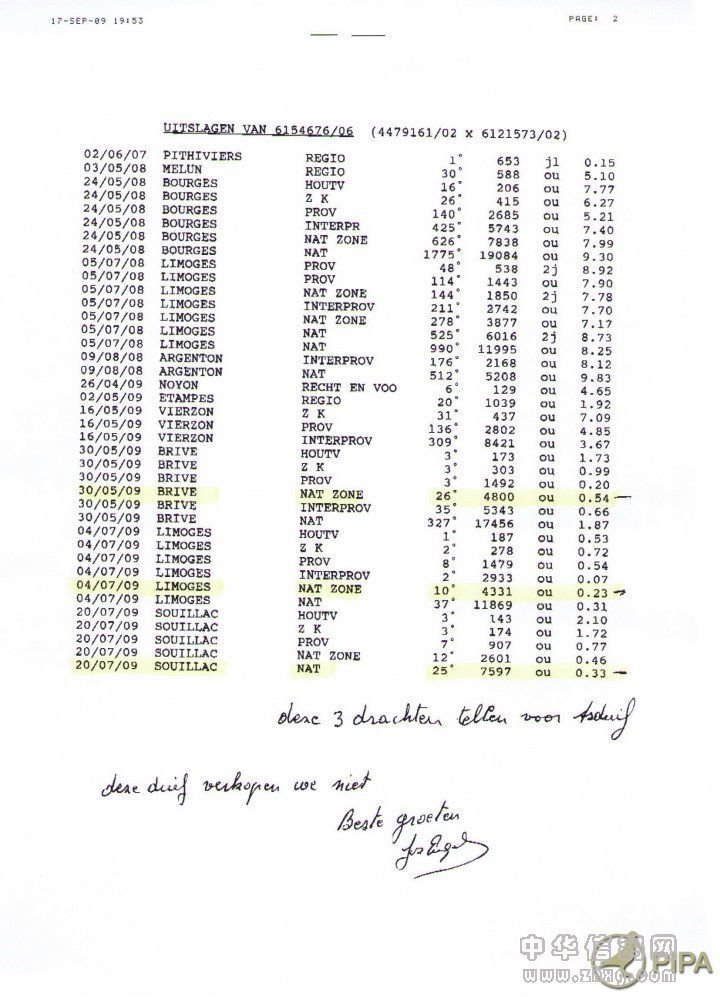 17-SEP-09 19:53 PAGE: 2
UITSLAGEN VAN 6154676/06 (4479161/02 X 6121573/02)
02/06/07 PITHIVIERS REGIO 1° 653 jl 0.15
03/05/08 MELUN REGIO 30° 588 ou 5.10
24/05/08 BOURGES HOUTV 16° 206 ou 7.77
24/05/08 BOURGES Z K 26° 415 ou 6.27
24/05/08 BOURGES PROV 140° 2685 ou 5.21
24/05/08 BOURGES INTERPR 425° 5743 ou 7.40
24/05/08 BOURGES NAT ZONE 626° 7838 ou 7.99
24/05/08 BOURGES NAT 1775° 19084 ou 9.30
05/07/08 LIMOGES PROV 48° 538 2j 8.92
05/07/08 LIMOGES PROV 114° 1443 ou 7.90
05/07/08 LIMOGES NAT ZONE 144° 1850 2j 7.78
05/07/08 LIMOGES INTERPROV 211° 2742 ou 7.70
05/07/08 LIMOGES NAT ZONE 278° 3877 ou 7.17
05/07/08 LIMOGES NAT 525° 6016 2j 8.73
05/07/08 LIMOGES NAT 990° 11995 ou 8.25
09/08/08 ARGENTON INTERPROV 176° 2168 ou 8.12
09/08/08 ARGENTON NAT 512° 5208 ou 9.83
26/04/09 NOYON RECHT EN VOO 6° 129 ou 4.65
02/05/09 ETAMPES REGIO 20° 1039 ou 1.92
16/05/09 VIERZON Z K 31° 437 ou 7.09
16/05/09 VIERZON PROV 136° 2802 ou 4.85
16/05/09 VIERZON INTERPROV 309° 8421 ou 3.67
30/05/09 BRIVE HOUTV 3° 173 ou 1.73
30/05/09 BRIVE Z K 3° 303 ou 0.99
30/05/09 BRIVE PROV 3° 1492 ou 0.20
30/05/09 BRIVE NAT ZONE 26° 4800 ou 0.54
30/05/09 BRIVE INTERPROV 35° 5343 ou 0.66
30/05/09 BRIVE NAT 327° 17456 ou 1.87
04/07/09 LIMOGES HOUTV 1° 187 ou 0.53
04/07/09 LIMOGES Z K 2° 278 ou 0.72
04/07/09 LIMOGES PROV 8° 1479 ou 0.54
04/07/09 LIMOGES INTERPROV 2° 2933 ou 0.07
04/07/09 LIMOGES NAT ZONE 10° 4331 ou 0.23
04/07/09 LIMOGES NAT 37° 11869 ou 0.31
20/07/09 SOUILLAC HOUTV 3° 143 ou 2.10
20/07/09 SOUILLAC Z K 3° 174 ou 1.72
20/07/09 SOUILLAC PROV 7° 907 ou 0.77
20/07/09 SOUILLAC NAT ZONE 12° 2601 ou 0.46
20/07/09 SOUILLAC NAT 25° 7597 ou 0.33
deze 3 drachten tellen voor Asduif
deze duif verkopen we niet
Beste groeten
Jos Engels
中华信鸽网
www.znxg.com
PIPA